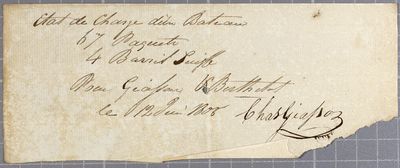 Etat de Charge d'un Bateau
57 Paquets
4 Barrils Suiffe
Pour Giasson & Berthelot
le 12 Juin 1808
Chas Giasson